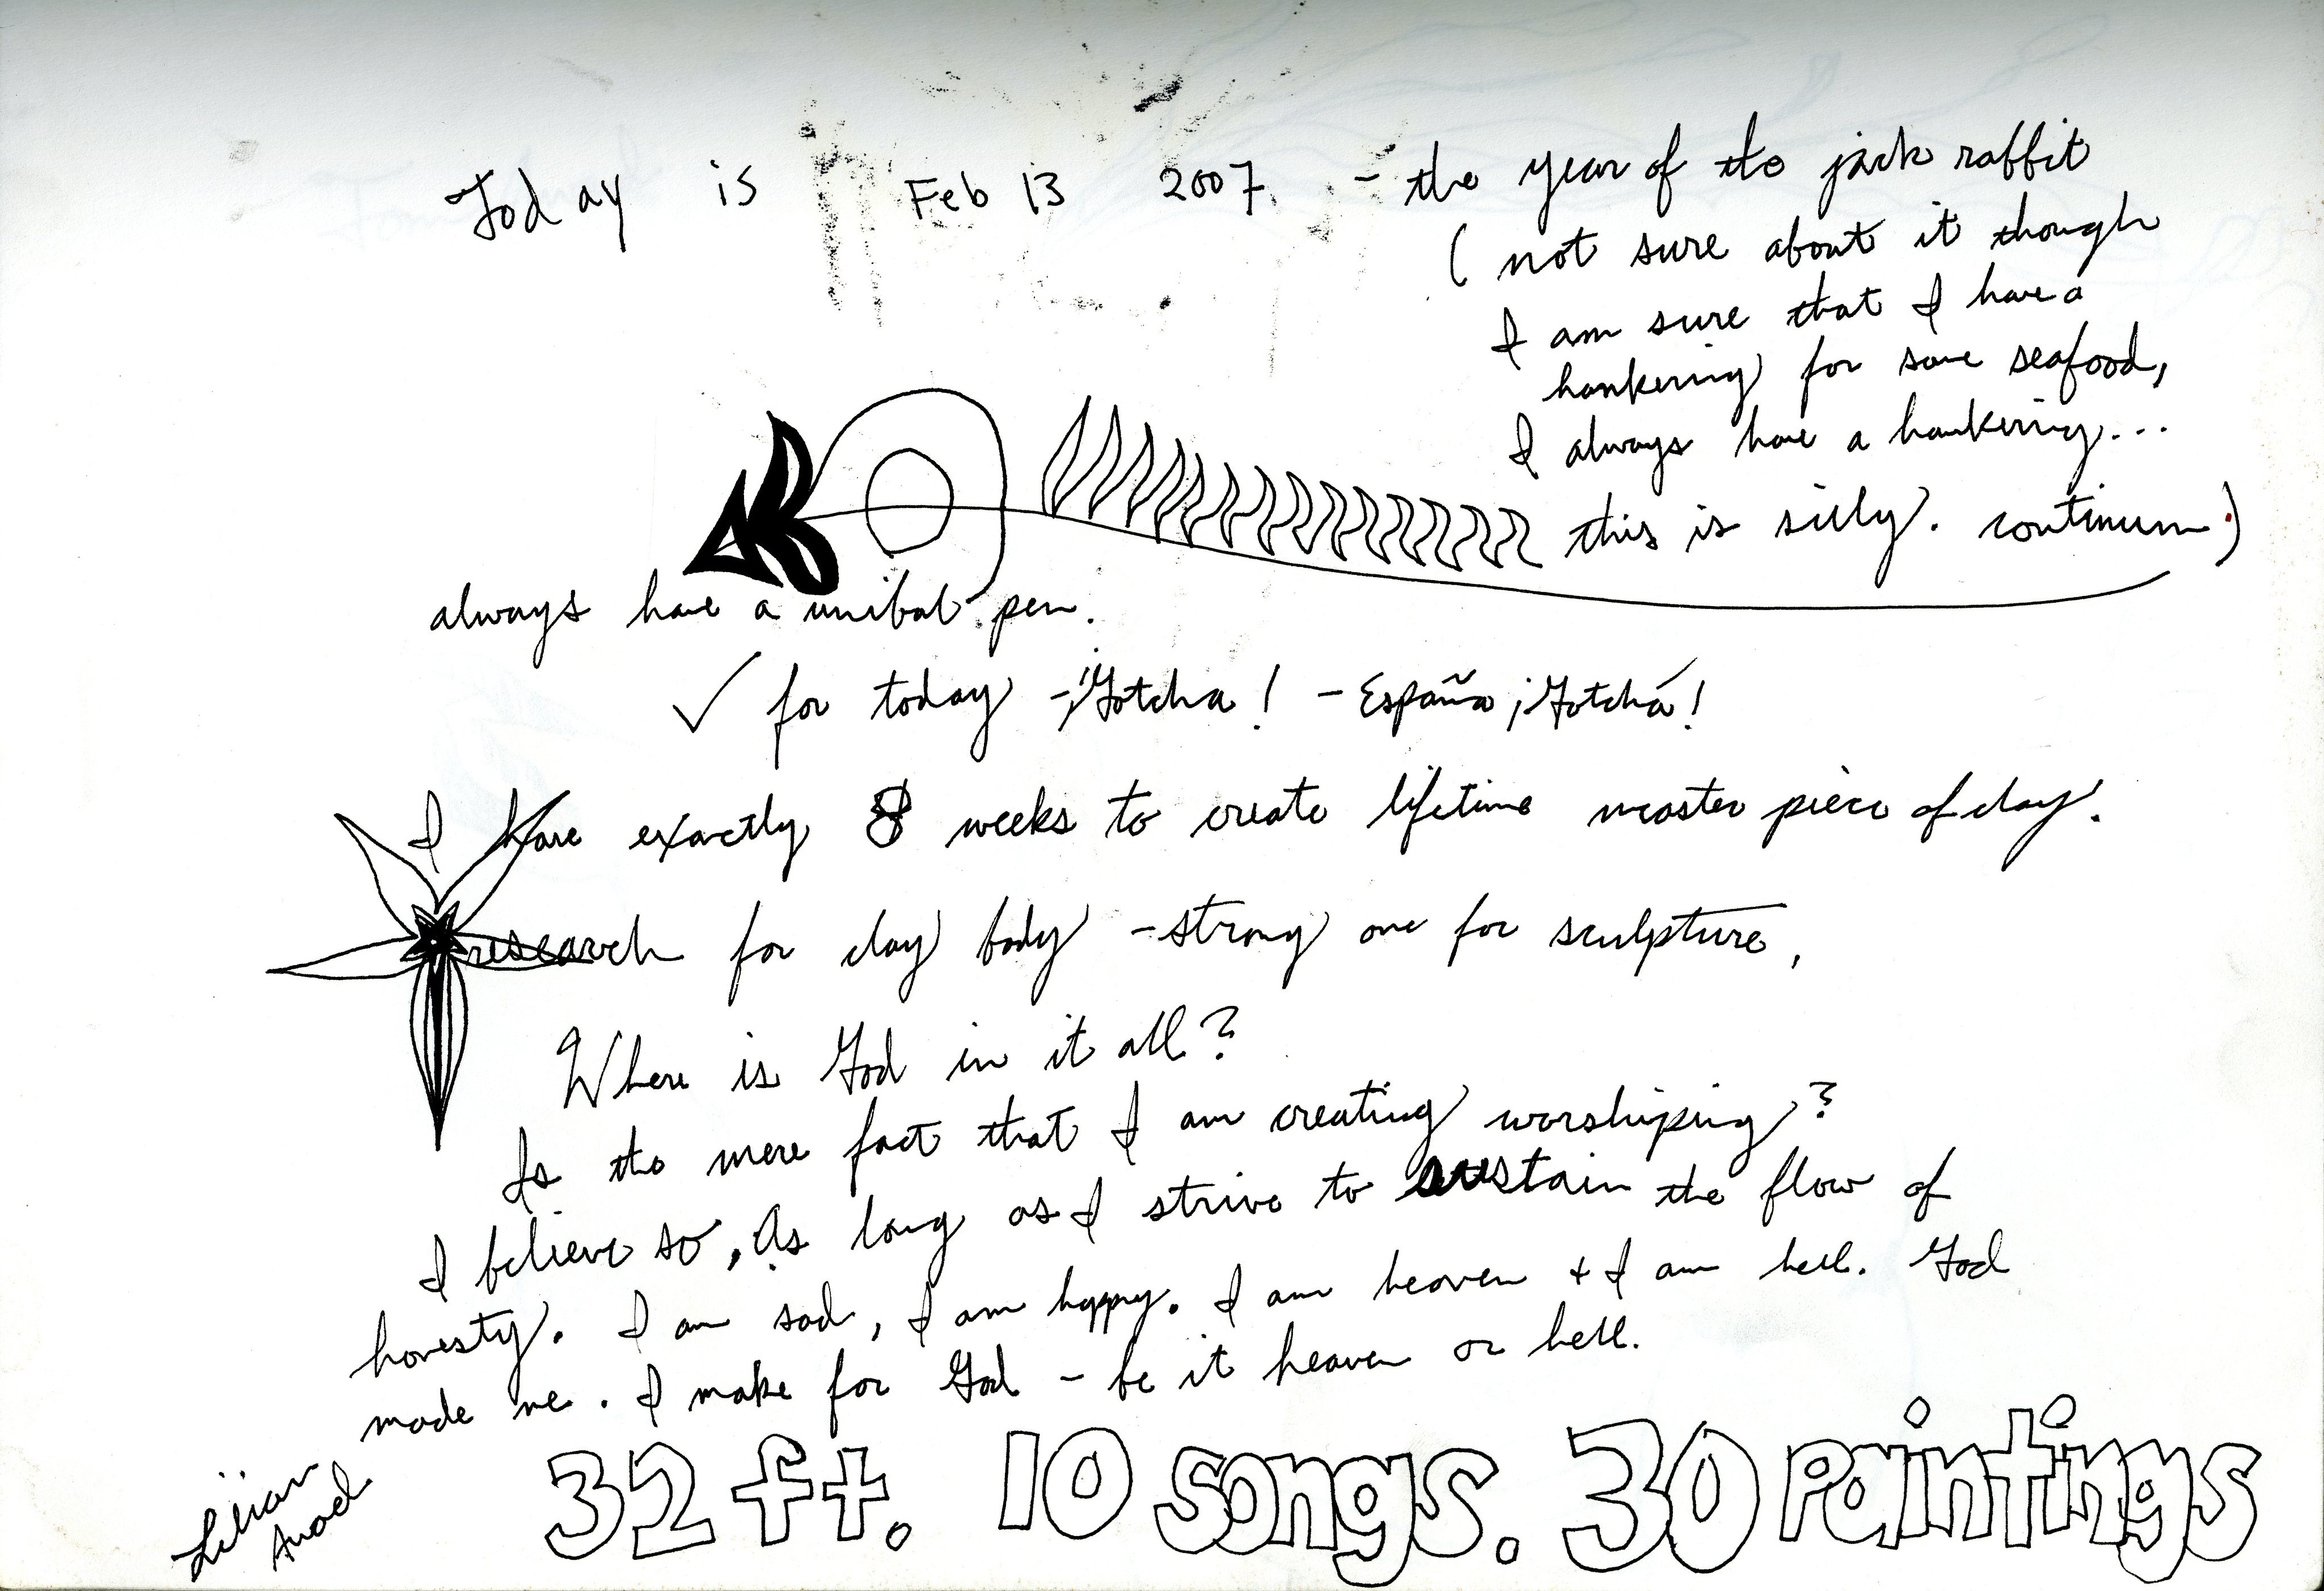 Today is Feb 13 2007. - the year of the jack rabbit
( not sure about it though
I am sure that I have a
hankering for some seafood,
I always have a hankering...
this is silly. continuum.)
always have a unibal pen.
✓ for today - ¡Gotcha! - España ¡Gotchá!
I have exactly 8 weeks to create lifetime master piece of clay.
research for clay body - strong one for sculpture,
Where is God in it all?
Is the mere fact that I am creating worshiping?
I believe so, As long as I strive to sustain the flow of
honesty. I am sad, I am happy. I am heaven + I am hell. God
made me. I make for God - be it heaven or hell.
32 ft. 10 songs. 30 Paintings
Lilian